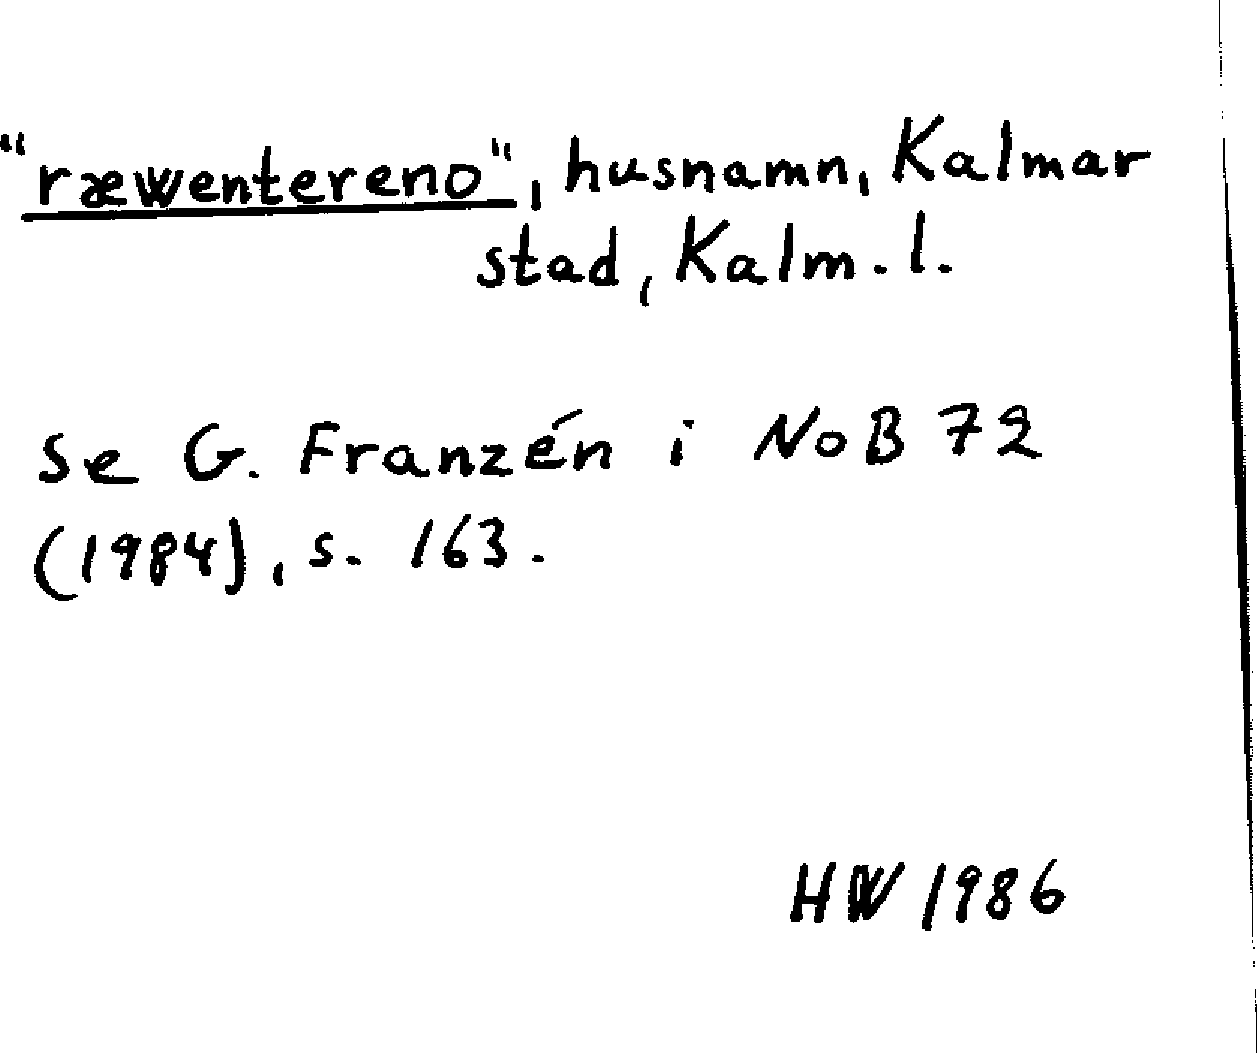 "ræwentereno", husnamn, Kalmar
stad, Kalm. l.
se G. Franzén i NoB 72
(1984), s. 163.
HW 1986